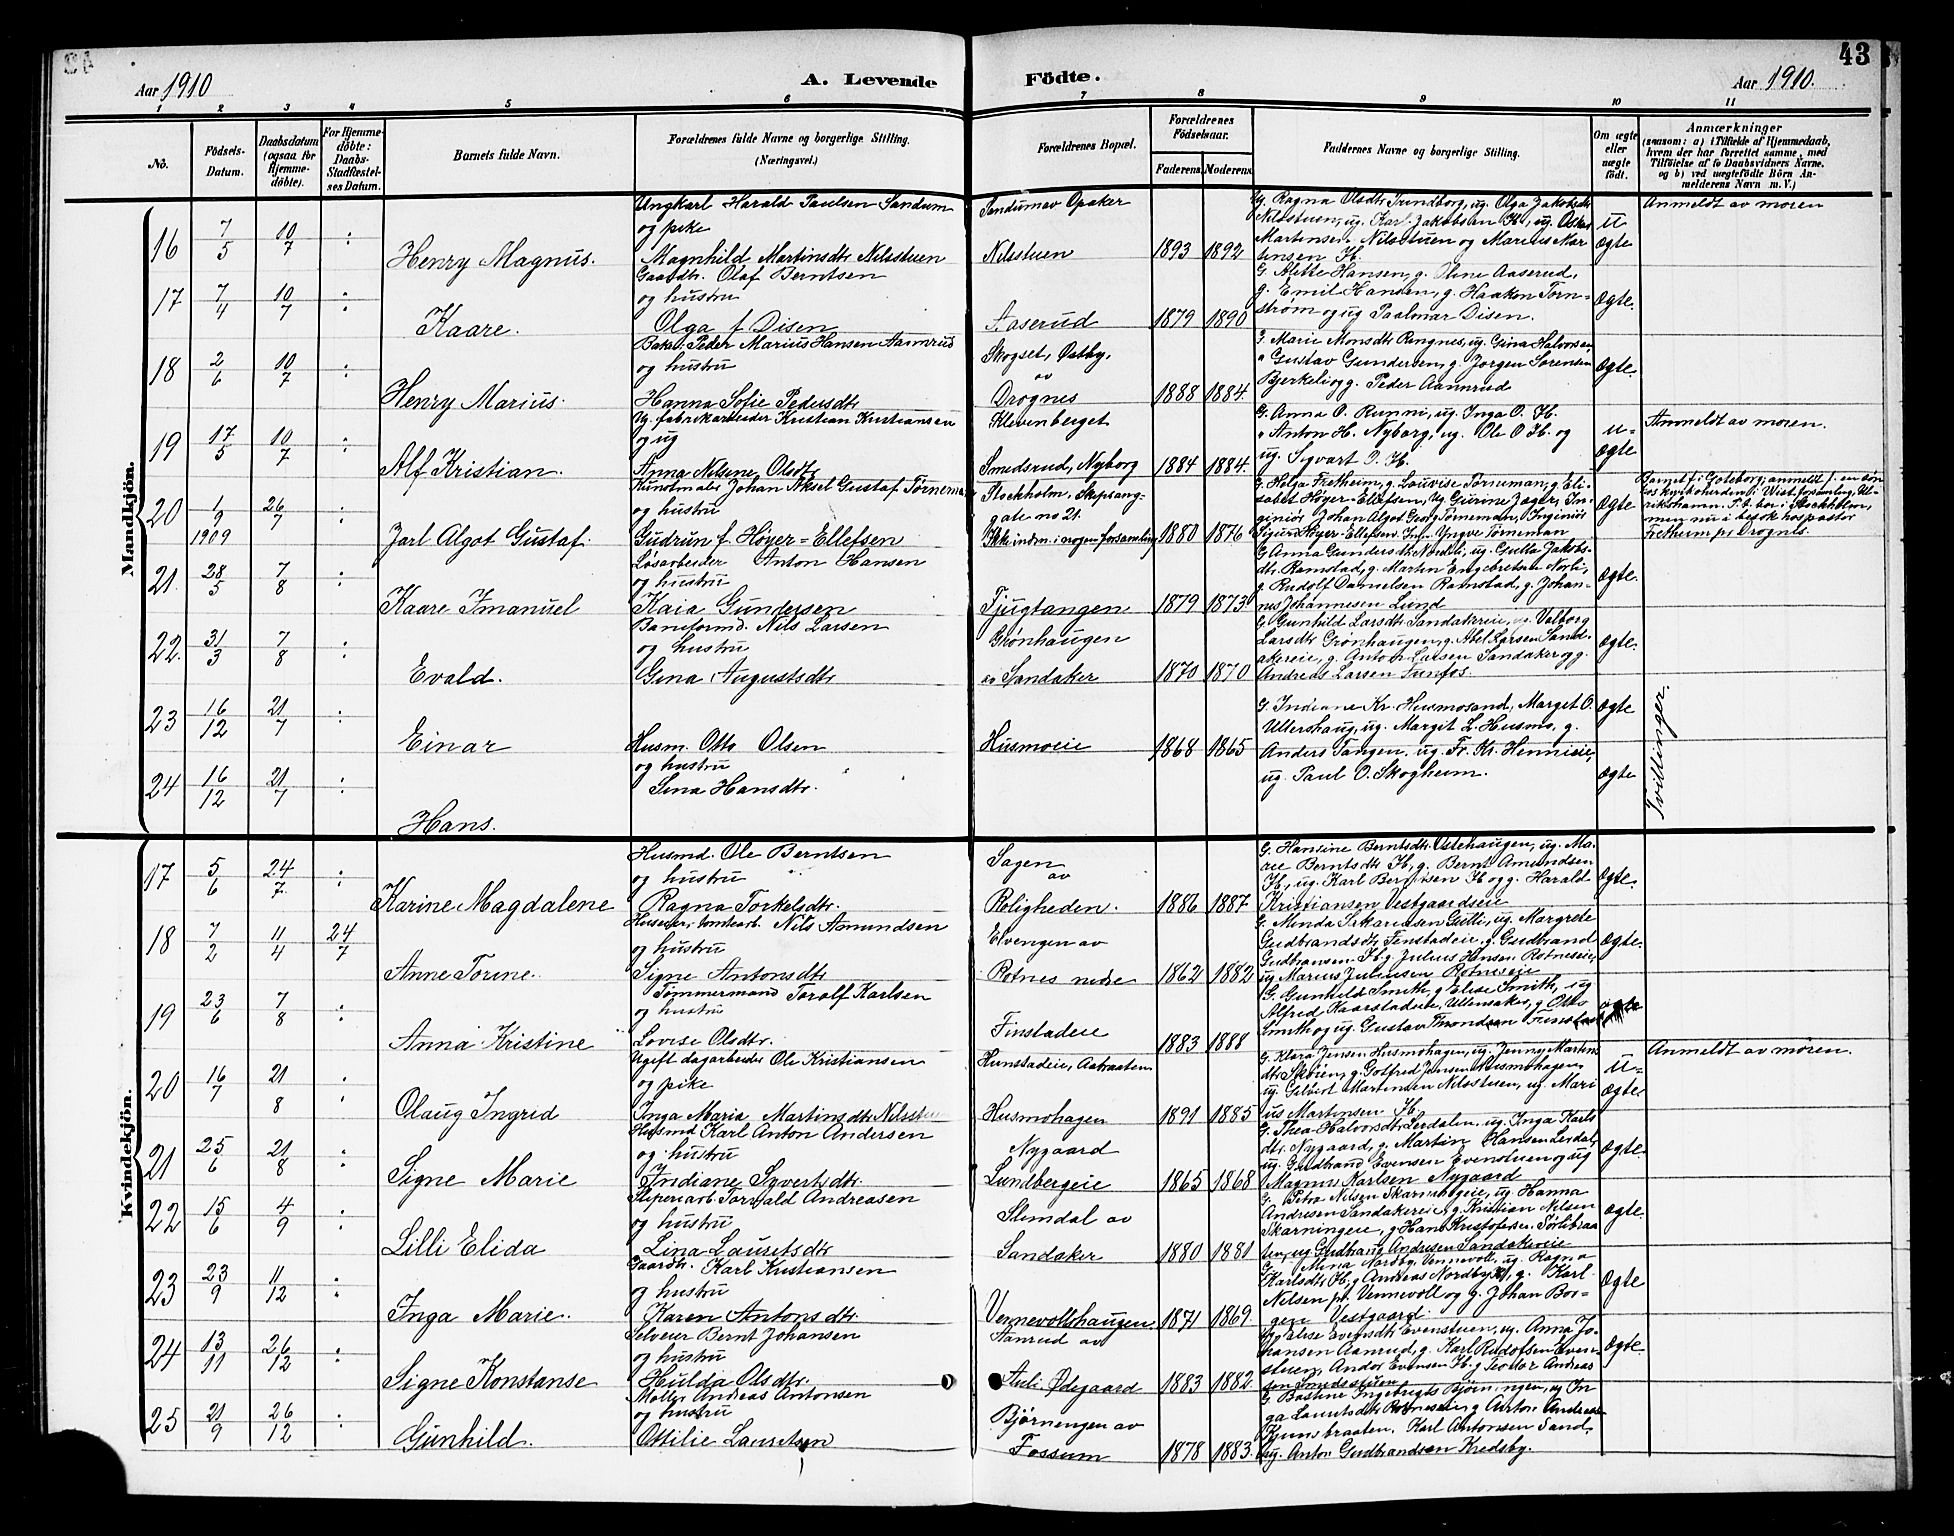 43
Aar 1910
A. Levende Födte.
Aar 1910.
1 2 3 4 5 6 7 8 9 10 11
No.
Födsels-Datum.
Daabsdatum (ogsaa for Hjemme-döbte).
For Hjemme-döbte: Daabs-Stadfæstel-ses Datum.
Barnets fulde Navn.
Forældrenes fulde Navne og borgerlige Stilling. (Næringsvei.)
Forældrenes Bopæl.
Forældrenes Födselsaar.
Faderens. Moderens.
Faddernes Navne og borgerlige Stilling.
Om ægte eller uægte födt.
Anmærkninger
(saasom: a) i Tilfælde af Hjemmedaab, hvem der har forrettet samme, med Tilföielse af to Daabsvidners Navne, og b) ved uægtefödte Börn An-melderens Navn m. V.)
Mandkjön.
16 7/5 10/7 Henry Magnus.
Ungkarl Harald Paulsen Sandum
og pike
Magnhild Martinsdtr Nilsstuen
Sandum av Opaker
Nilsstuen 1893 1892
Ug. Ragna Olsdtr Trundborg, ug. Olga Jakobsdtr
Nilsstuen, ug. Karl Jakobsen H., ug. Oskar
Martensen Nilsstuen og Marius Mar
tensen H.
u
ægte
Anmeldt av moren
17 7/4 10/7 Kaare.
Gaardbr. Olaf Berntsen
og hustru
Olga f. Disen
Aaserud 1879 1890
G. Alette Hansen, g. Oline Aaserud,
g. Emil Hansen, g. Haakon Torn-
strøm og ug Paalmar Disen.
Ægte.
18 2/6 10/7 Henry Marius.
Baker Peder Marius Hansen Aamrud
og hustru
Hanna Sofie Pedersdtr
Skogset, Østby,
av
Drognes 1888 1884
G. Marie Monsdtr Rongnes, ug. Gina Halvorsen,
" Gustav Gundersen, g. Jørgen Sørensen
Bjerkeli og g. Peder Aamrud
Ægte.
19 17/5 10/7 Alf Kristian.
Ug. fabrikarbeider Kristian Kristiansen
og ug
Anna Nilsine Olsdtr
Klevenberget
Smedsrud, Nyborg 1884 1884.
G. Anna O. Runni, ug. Inga O. H.
" Anton H. Nyborg, ug. Ole O H. og
ug. Sigvart O. H.
u-
ægte
Anmeldt av moren.
20 1/9 1909 26/7 Jarl Algot Gustaf.
Kunstmaler Johan Aksel Gustaf Törneman
og hustru
Gudrun f. Høyer-Ellefsen
Stockholm, Skepsang-
gate no 21.
Ikke indm. i nogen forsamling 1880 1876
G. Helga Fretheim, g. Louvise Törneman, g. Eli-
sabet Høyer-Ellefsen, Ug. Gurine Jager, In-
geniör Johan Algot Georg Törneman, Ingeniör
Sigurd Høyer-Ellefsen. Ing. Yngve Törneman
Ægte
Barnet f. i Göteborg, anmeldt f. en dön
hos kyrkoherden i
bor i Stockholm,
men nu i besøk hos pastor
Fretheim pr Drognes.
21. 28/5 7/8 Kaare Imanuel
Løsarbeider Anton Hansen
og hustru
Kaia Gundersen
Fjugtangen 1879 1873
G. Anna Gundersdtr Nordli, ug. Gutta Jakobs-
dtr. Ramstad, g. Martin Engebretsen Norli,
g. Rudolf Danielsen Ramstad, g. Johan-
nes Johannesen Lund
Ægte.
22. 31/3 7/8 Evald.
Baneformd. Nils Larsen
og hustru
Gina Augustsdtr
Grønhaugen
av Sandaker 1870 1870
G. Gunhild Larsdtr Sandakereie, ug. Valborg
Larsdtr Grønhaugen, g. Abel Larsen Sand-
akereie, g. Anton Larsen Sandaker og g.
Andreas Larsen Funfos.
Ægte.
23 16/12 21/7 Einar
Husm. Otto Olsen
og hustru
Sina Hansdtr.
Husmoeie 1868 1865
G. Indiane Kr. Husmosand, Marget O.
Ullershaug, ug. Margit L. Husmo, g.
Anders Tangen, ug. Fr. Kr. Hennieie,
ug. Paul O. Skogheim.
Ægte
24 16/12 21/7 Hans.
ægte
Tvillinger.
Kvindekjön.
17 5/6 24/7. Karine Magdalene
Husmd. Ole Berntsen
og hustru
Ragna Torkelsdtr.
Sagen
av
Roligheden. 1886 1887
G. Hansine Berntsdtr Ostehaugen, ug. Ma-
rie Berntsdtr H., g. Bernt Amundsen
H., ug. Karl Berntsen H. og g. Harald
Kristiansen Vestgaardseie
Ægte.
18 7/2 11/4 24/7 Anne Torine.
Nils Amundsen
og hustru
Signe Antonsdtr
Elvengen av
Rotnes nedre 1862 1882
G. Minda Sakariasen Gutti, ug. Margrete
Gudbrandsdtr Finstadeie, g. Gudbrand
Gudbransen H. g. Julius Hansen Rotneseie
ug Marius Juliusen Rotneseie
Ægte.
19 23/6 7/8 Anna Kristine
Tømmermand Toralf Karlsen
og hustru
Lovise Olsdtr.
Finstadeie 1883 1888
G. Gunhild Smith, g Elise Smith, ug
Alfred Kaarstadeie, Ullensaker, g Otto
Smith og ug. Gustav Thondsen Finstad
ægte
20 16/7 21/8 Olaug Ingrid
Ugift dagarbeider Ole Kristiansen
og pike
Inga Marie Martinsdtr Nilsstuen
Hunstadeie, Aabraaten
Husmohagen 1891 1885
G. Klara Jensen Husmohagen, ug. Jenny Martins
dtr Skoien, g. Gotfred Jensen Husmohagen
ug. Gilbert Martinsen Nilsstuen, ug. Mari
us Martinsen H.
u-
ægte
Anmeldt av moren.
21 25/6 21/8 Signe Marie
Husmd Karl Anton Andersen
og hustru
Indiane Syvertsdtr.
Nygaard
Lundbergeie 1865 1868
G. Thea Halvorsdtr Lerdalen, ug. Inga Karls
dtr. Nygaard, g. Martin Hansen Lerdal,
ug. Gudbrand Evensen Evenstuen og ug
Magnus Karlsen Nygaard
Ægte.
22 15/6 4/9 Lilli Elida
Sliperiarb. Torvald Andreasen
og hustru
Lina Lauritsdtr
Slemdal av
Sandaker 1880 1881
G. Petra Nilsen Skarningeie, ug. Hanna
Andresen Sandakereie, g Kristian Nilsen
Skarningeie, g Hans Kristofersen Sørlibraa
ten, ug. Gudbrand Andresen Sandakereie
Ægte.
23 23/9 11/12 Inga Marie.
Gaardbr. Karl Kristiansen
og hustru
Karen Antonsdtr
Vennevollshaugen. 1871 1869.
G. Mina Nordby, Vennevoll, ug Ragna
Karlsdtr H, g Andreas Nordby, g. Karl
Nilsen pr. Vennevoll og g. Johan Bor-
gen Vestgaard.
Ægte
24 13/11 26/12 Signe Konstanse
Selveier Bernt Johansen
og hustru
Hulda Olsdtr.
Aamrud av
Auli Ødegaard 1883 1882
Ug Elise Evensdtr Evenstuen, ug. Anna Jo-
hansen Aamrud, g. Karl Rudolfsen Even-
stuen, Andor Evensen H. g Teodor Andreas
sen Smedsstuen
Ægte.
25 21/9 26/12 Gunhild.
Møller Andreas Antonsen
og hustru
Ottilie Lauritsen
Bjørnengen av
Fossum 1878 1883.
G Bastine Ingebrigts Bjørningen, ug In
ga Lauritsdtr Rotneseie g Anton Andreas
Kjunsbraaten. Karl Antonsen Sand,
ug. Anton Gudbrandsen Kredsby.